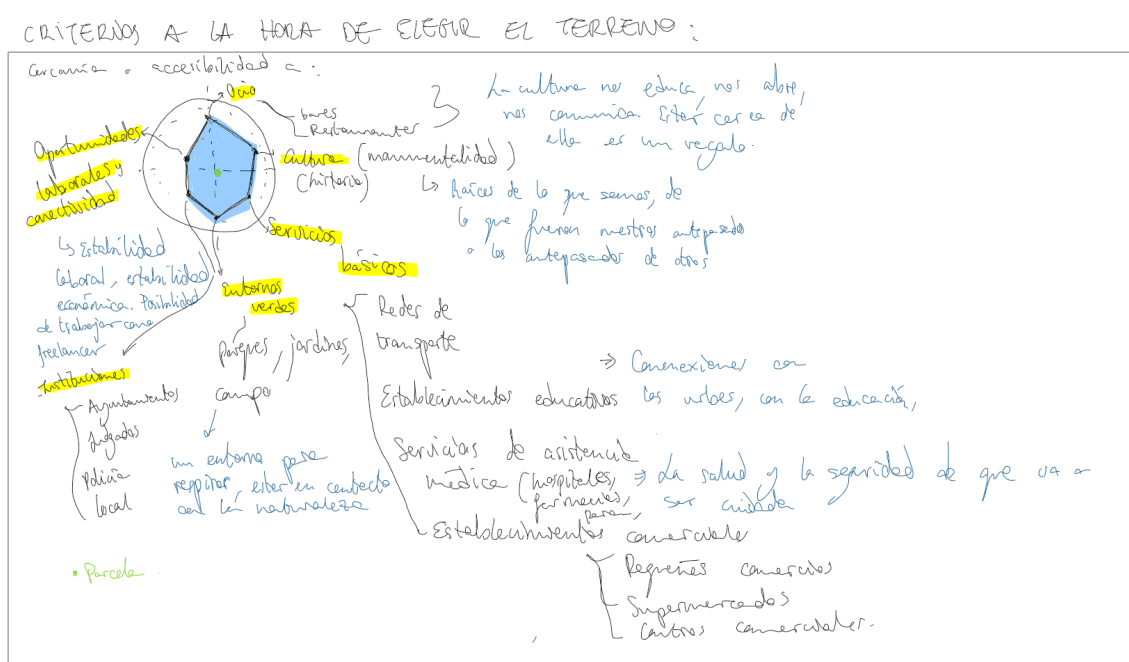 CRITERIOS A LA HORA DE ELEGIR EL TERRENO:
Cercanía o accesibilidad a:
Ocio
bares
Restaurantes
La cultura nos educa, nos abre,
nos comunica. Estar cerca de
ella es un regalo.
Cultura (monumentalidad)
(historia)
Raíces de lo que somos, de
lo que fueron nuestros antepasados
o los antepasados de otros
Oportunidades
laborales y
conectividad
Estabilidad
laboral, estabilidad
económica. Posibilidad
de trabajar como
freelancer
Servicios
básicos
Entornos
verdes
Parques, jardines,
campo
un entorno para
respirar, estar en contacto
con la naturaleza
Instituciones
Ayuntamientos
Juzgados
Policía
local
Redes de
transporte
Establecimientos educativos
=> Conenexiones con
las urbes, con la educación,
Servicios de asistencia
médica (hospitales,
farmacias,
=> La salud y la seguridad de que va a
ser cuidada
Establecimientos comerciales
Pequeños comercios
Supermercados
Centros comerciales.
• Parcela